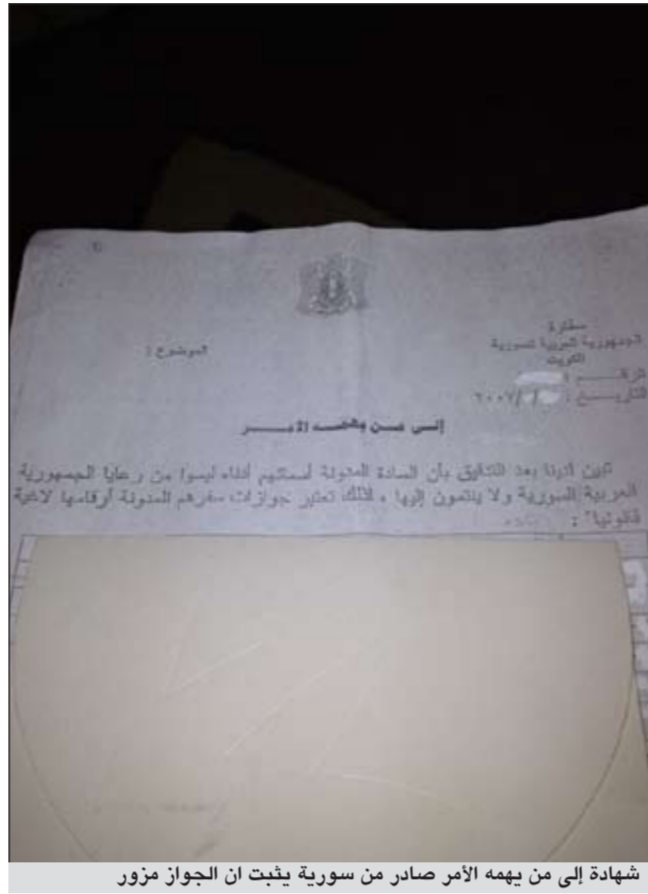 سفارة
الجمهورية العربية السورية
الكويت
الرقــــم :
التاريــــخ : / / ٢٠٠٧
الموضوع :
إلـى مـن يهمـه الأمـــر
تبين لدينا بعد التدقيق بأن السادة المدونة أسمائهم أدناه ليسوا من رعايا الجمهورية
العربية السورية ولا ينتمون إليها ، لذلك تعتبر جوازات سفرهم المدونة أرقامها لاغية
قانونيا" :
شهادة إلى من يهمه الأمر صادر من سورية يثبت ان الجواز مزور